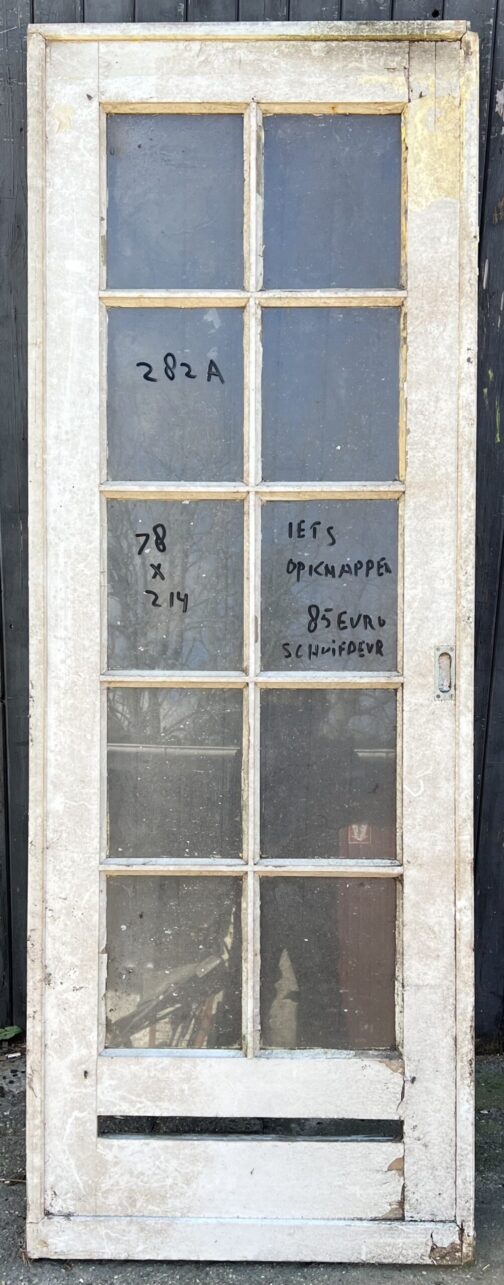 282A
78
X
214
IETS
OPKNAPPEN
85 EURO
SCHUIFDEUR